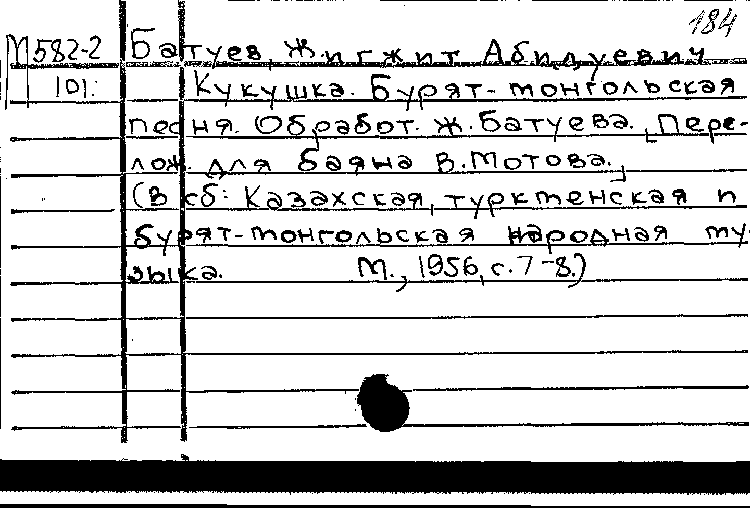 184
М582-2 Батуев, Жигжит Абидуевич
101. Кукушка. Бурят-монгольская
песня. Обработ. Ж. Батуева. [Пере-
лож. для баяна В. Мотова.]
(В сб: Казахская, туркменская и
бурят-монгольская народная му-
зыка. М., 1956, с. 7-8.)